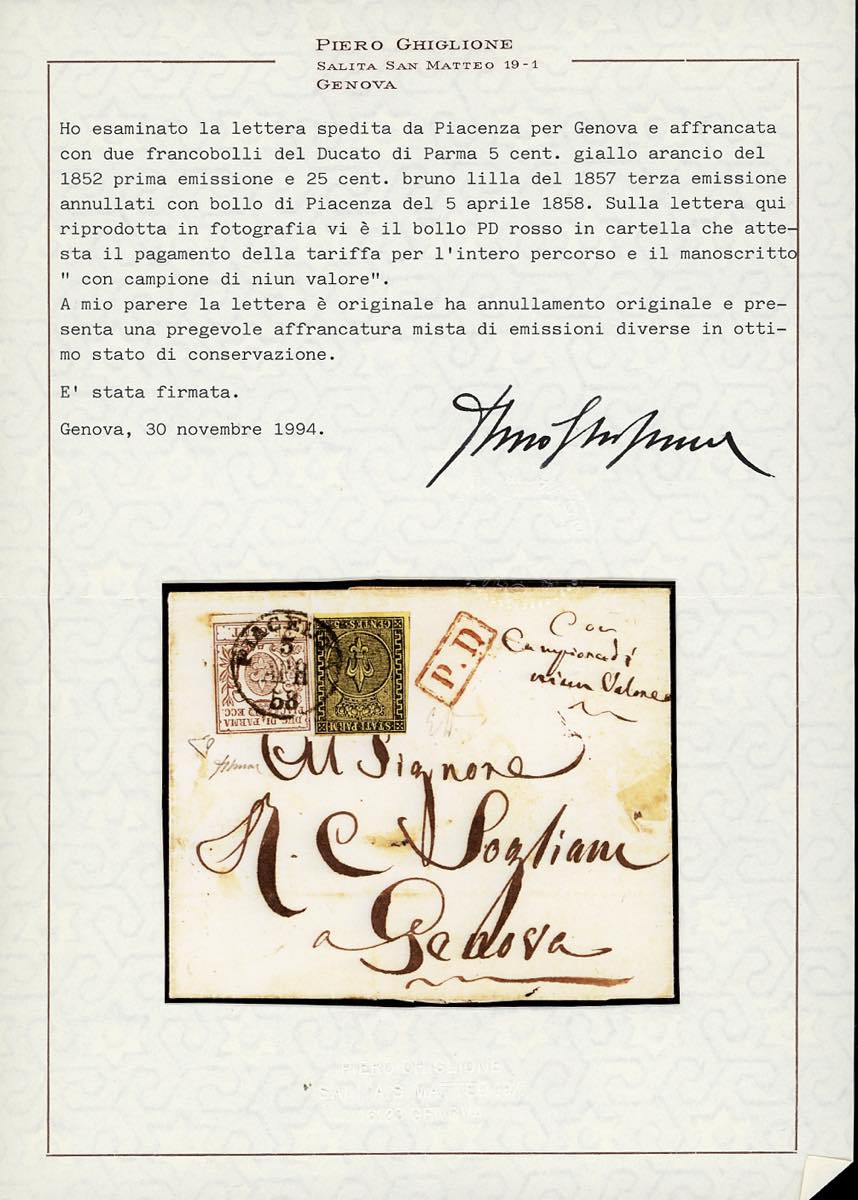 PIERO GHIGLIONE
SALITA SAN MATTEO 19-1
GENOVA
Ho esaminato la lettera spedita da Piacenza per Genova e affrancata
con due francobolli del Ducato di Parma 5 cent. giallo arancio del
1852 prima emissione e 25 cent. bruno lilla del 1857 terza emissione
annullati con bollo di Piacenza del 5 aprile 1858. Sulla lettera qui
riprodotta in fotografia vi è il bollo PD rosso in cartella che atte-
sta il pagamento della tariffa per l'intero percorso e il manoscritto
" con campione di niun valore".
A mio parere la lettera è originale ha annullamento originale e pre-
senta una pregevole affrancatura mista di emissioni diverse in otti-
mo stato di conservazione.
E' stata firmata.
Genova, 30 novembre 1994.
5
APR
58
DUC. DI PARMA
PIAC. ECC.
CENTES. 5
STATI PARM
P.D
Con
Campione di
niun Valore
Al Signore
N. C Sogliani
a Genova
PIERO GHIGLIONE
SALITA S. MATTEO 19/1
GENOVA